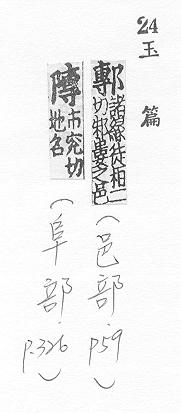 24 玉篇
鄟 諸緣徒桓二
切邾婁之邑
(邑部 p59)
市兗切
地名
(阜部 p.326)